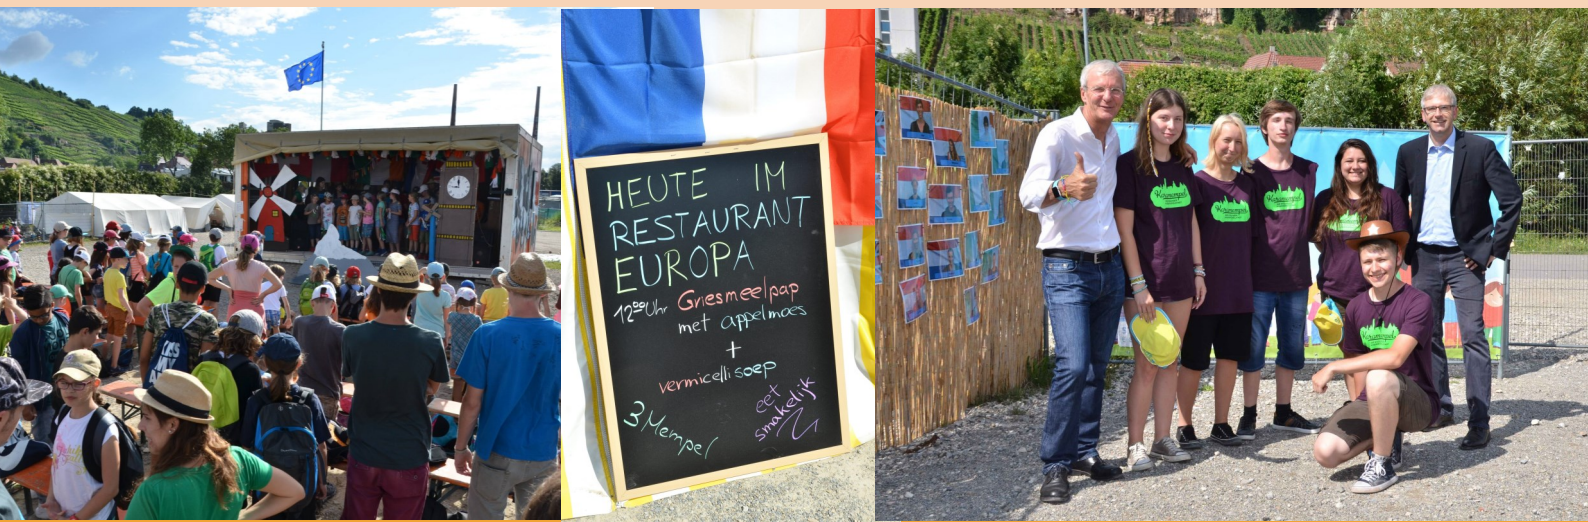 HEUTE IM
RESTAURANT
EUROPA
12⁰⁰Uhr Griesmeelpap
met appelmoes
+
vermicellisoep
3 Mempel
eet
smakelijk